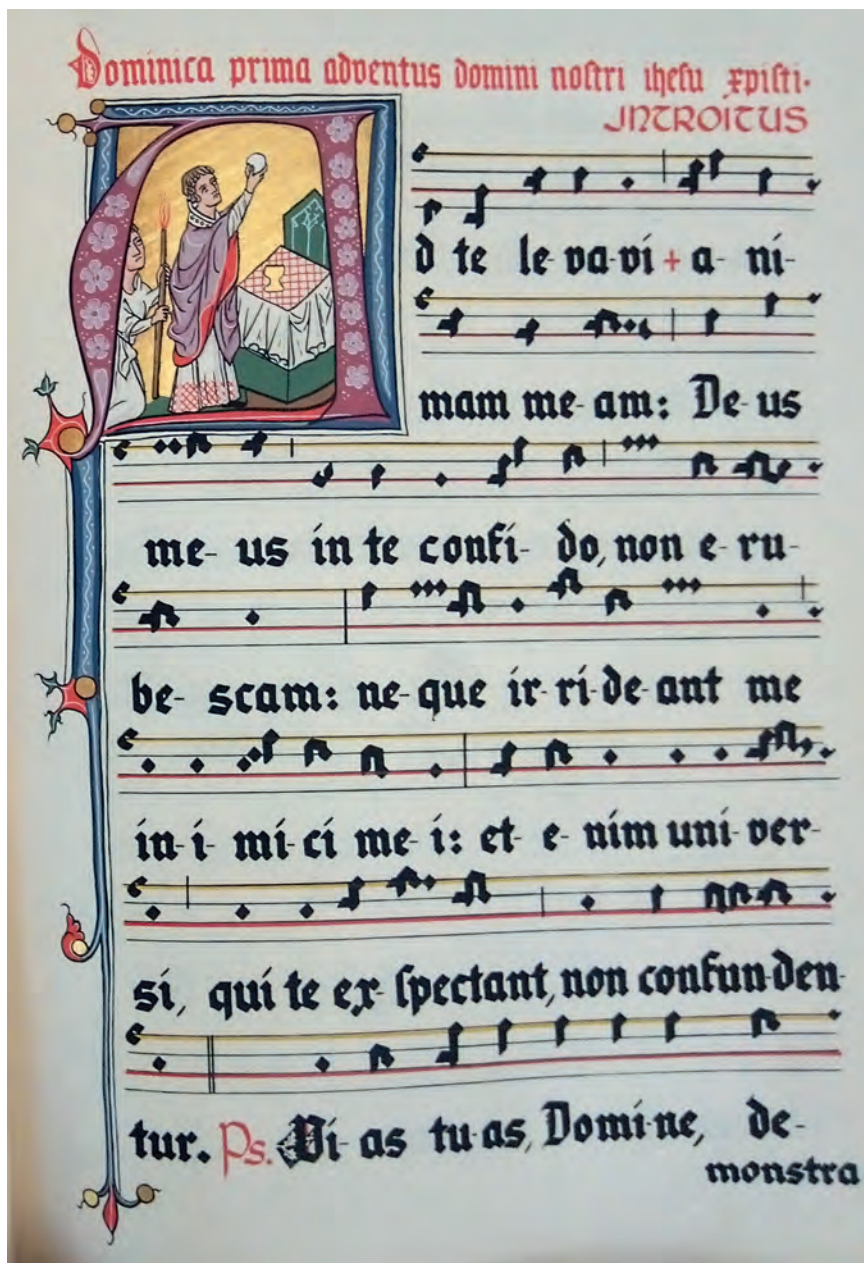 Dominica prima adventus domini noſtri iheſu xpiſti.
INTROITUS
Ad te le-va-vi + a-ni-
mam me-am: De-us
me-us in te confi-do, non e-ru-
be-scam: ne-que ir-ri-de-ant me
in-i-mi-ci me-i: et-e-nim uni-ver-
si, qui te ex-ſpectant, non confun-den-
tur. Ps. Vi-as tu-as, Domi-ne, de-
monstra